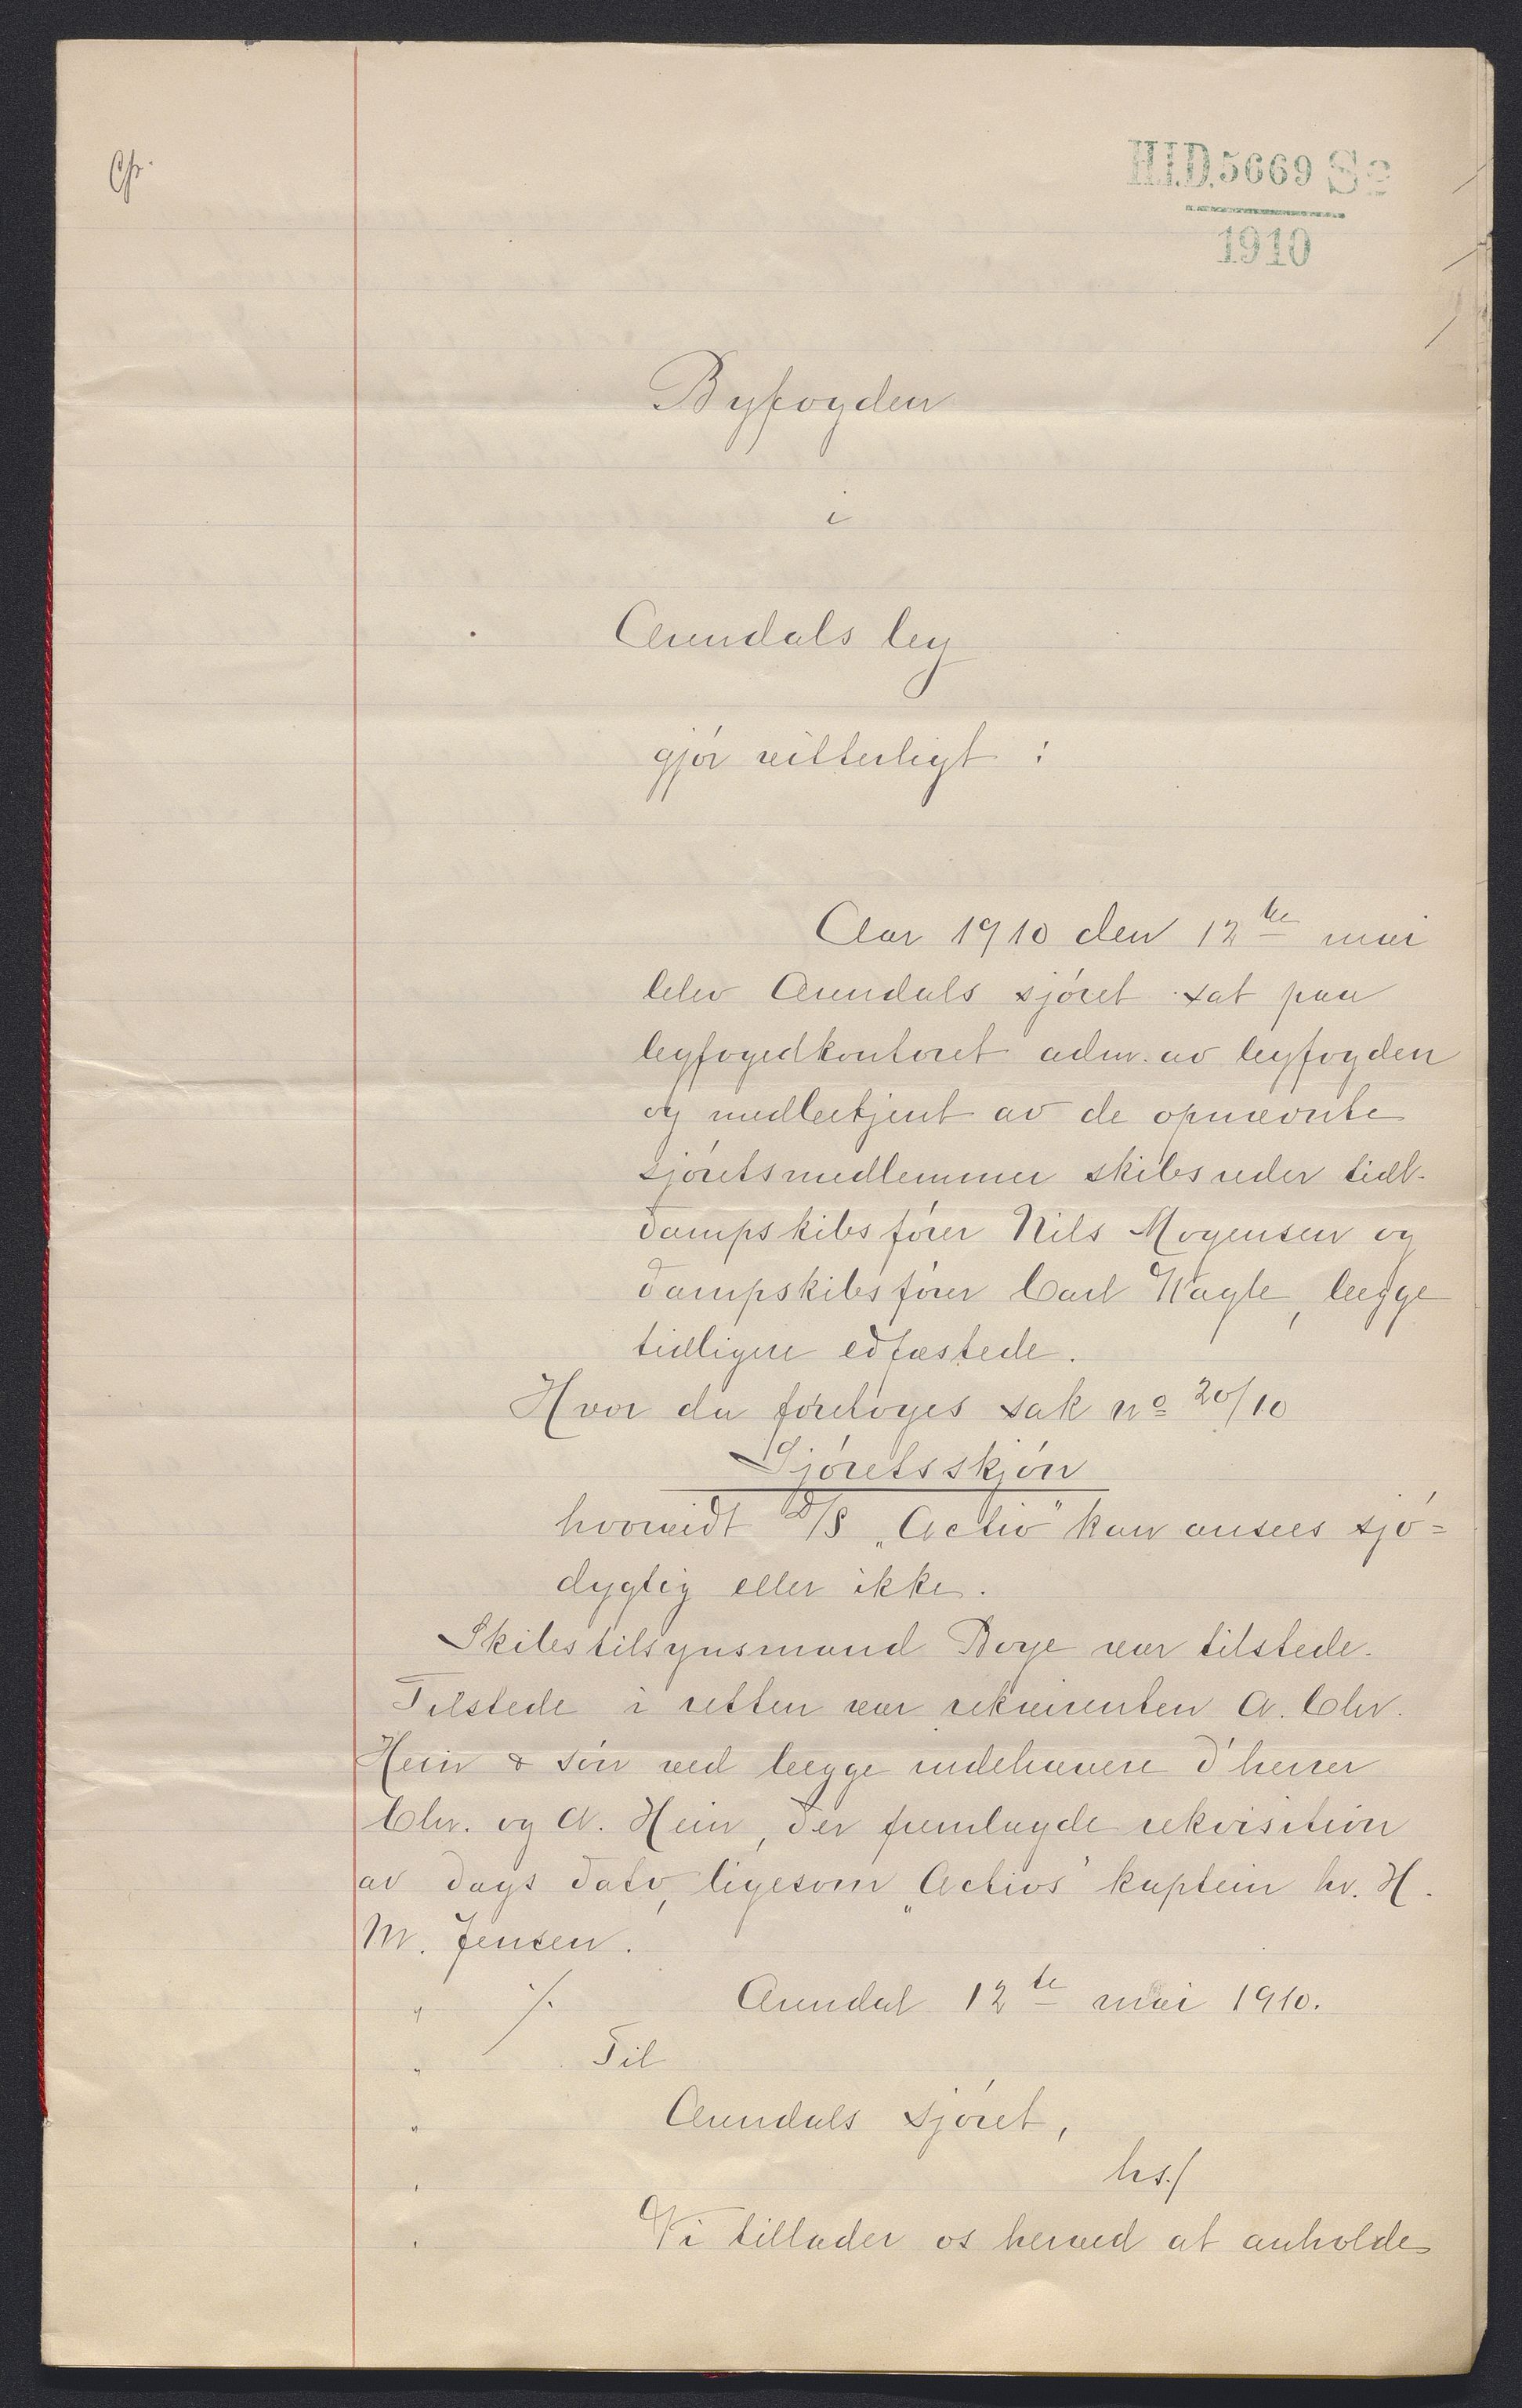 Chr.
H.I.D. 5669 Sø
1910
Byfogden
i
Arendals by
gjør vitterligt :
Aar 1910 den 12te mai
blev Arendals sjøret sat paa
byfogedkontoret adm. av byfogden
og medbetjent av de opnævnte
sjøretsmedlemmer skibsreder tidl.
dampskibsfører Nils Mogensen og
dampskibsfører Carl Wagle, begge
tidligere edfæstede.
Hvor da foretoges sak no 20/10
Sjøretsskjøn
hvorvidt D/S „Activ" kan ansees sjø=
dygtig eller ikke.
Skibstilsynsmand Boye var tilstede.
Tilstede i retten var rekvirenten A. Chr.
Hein & søn ved begge indehavere d'herrer
Chr. og A. Hein, der fremlagde rekvisition
av dags dato, ligesom „Activs" kaptein hr. H.
M. Jensen.
" ./. Arendal 12te mai 1910.
" Til
" Arendals sjøret,
" hs./
" Vi tillader os herved at anholde